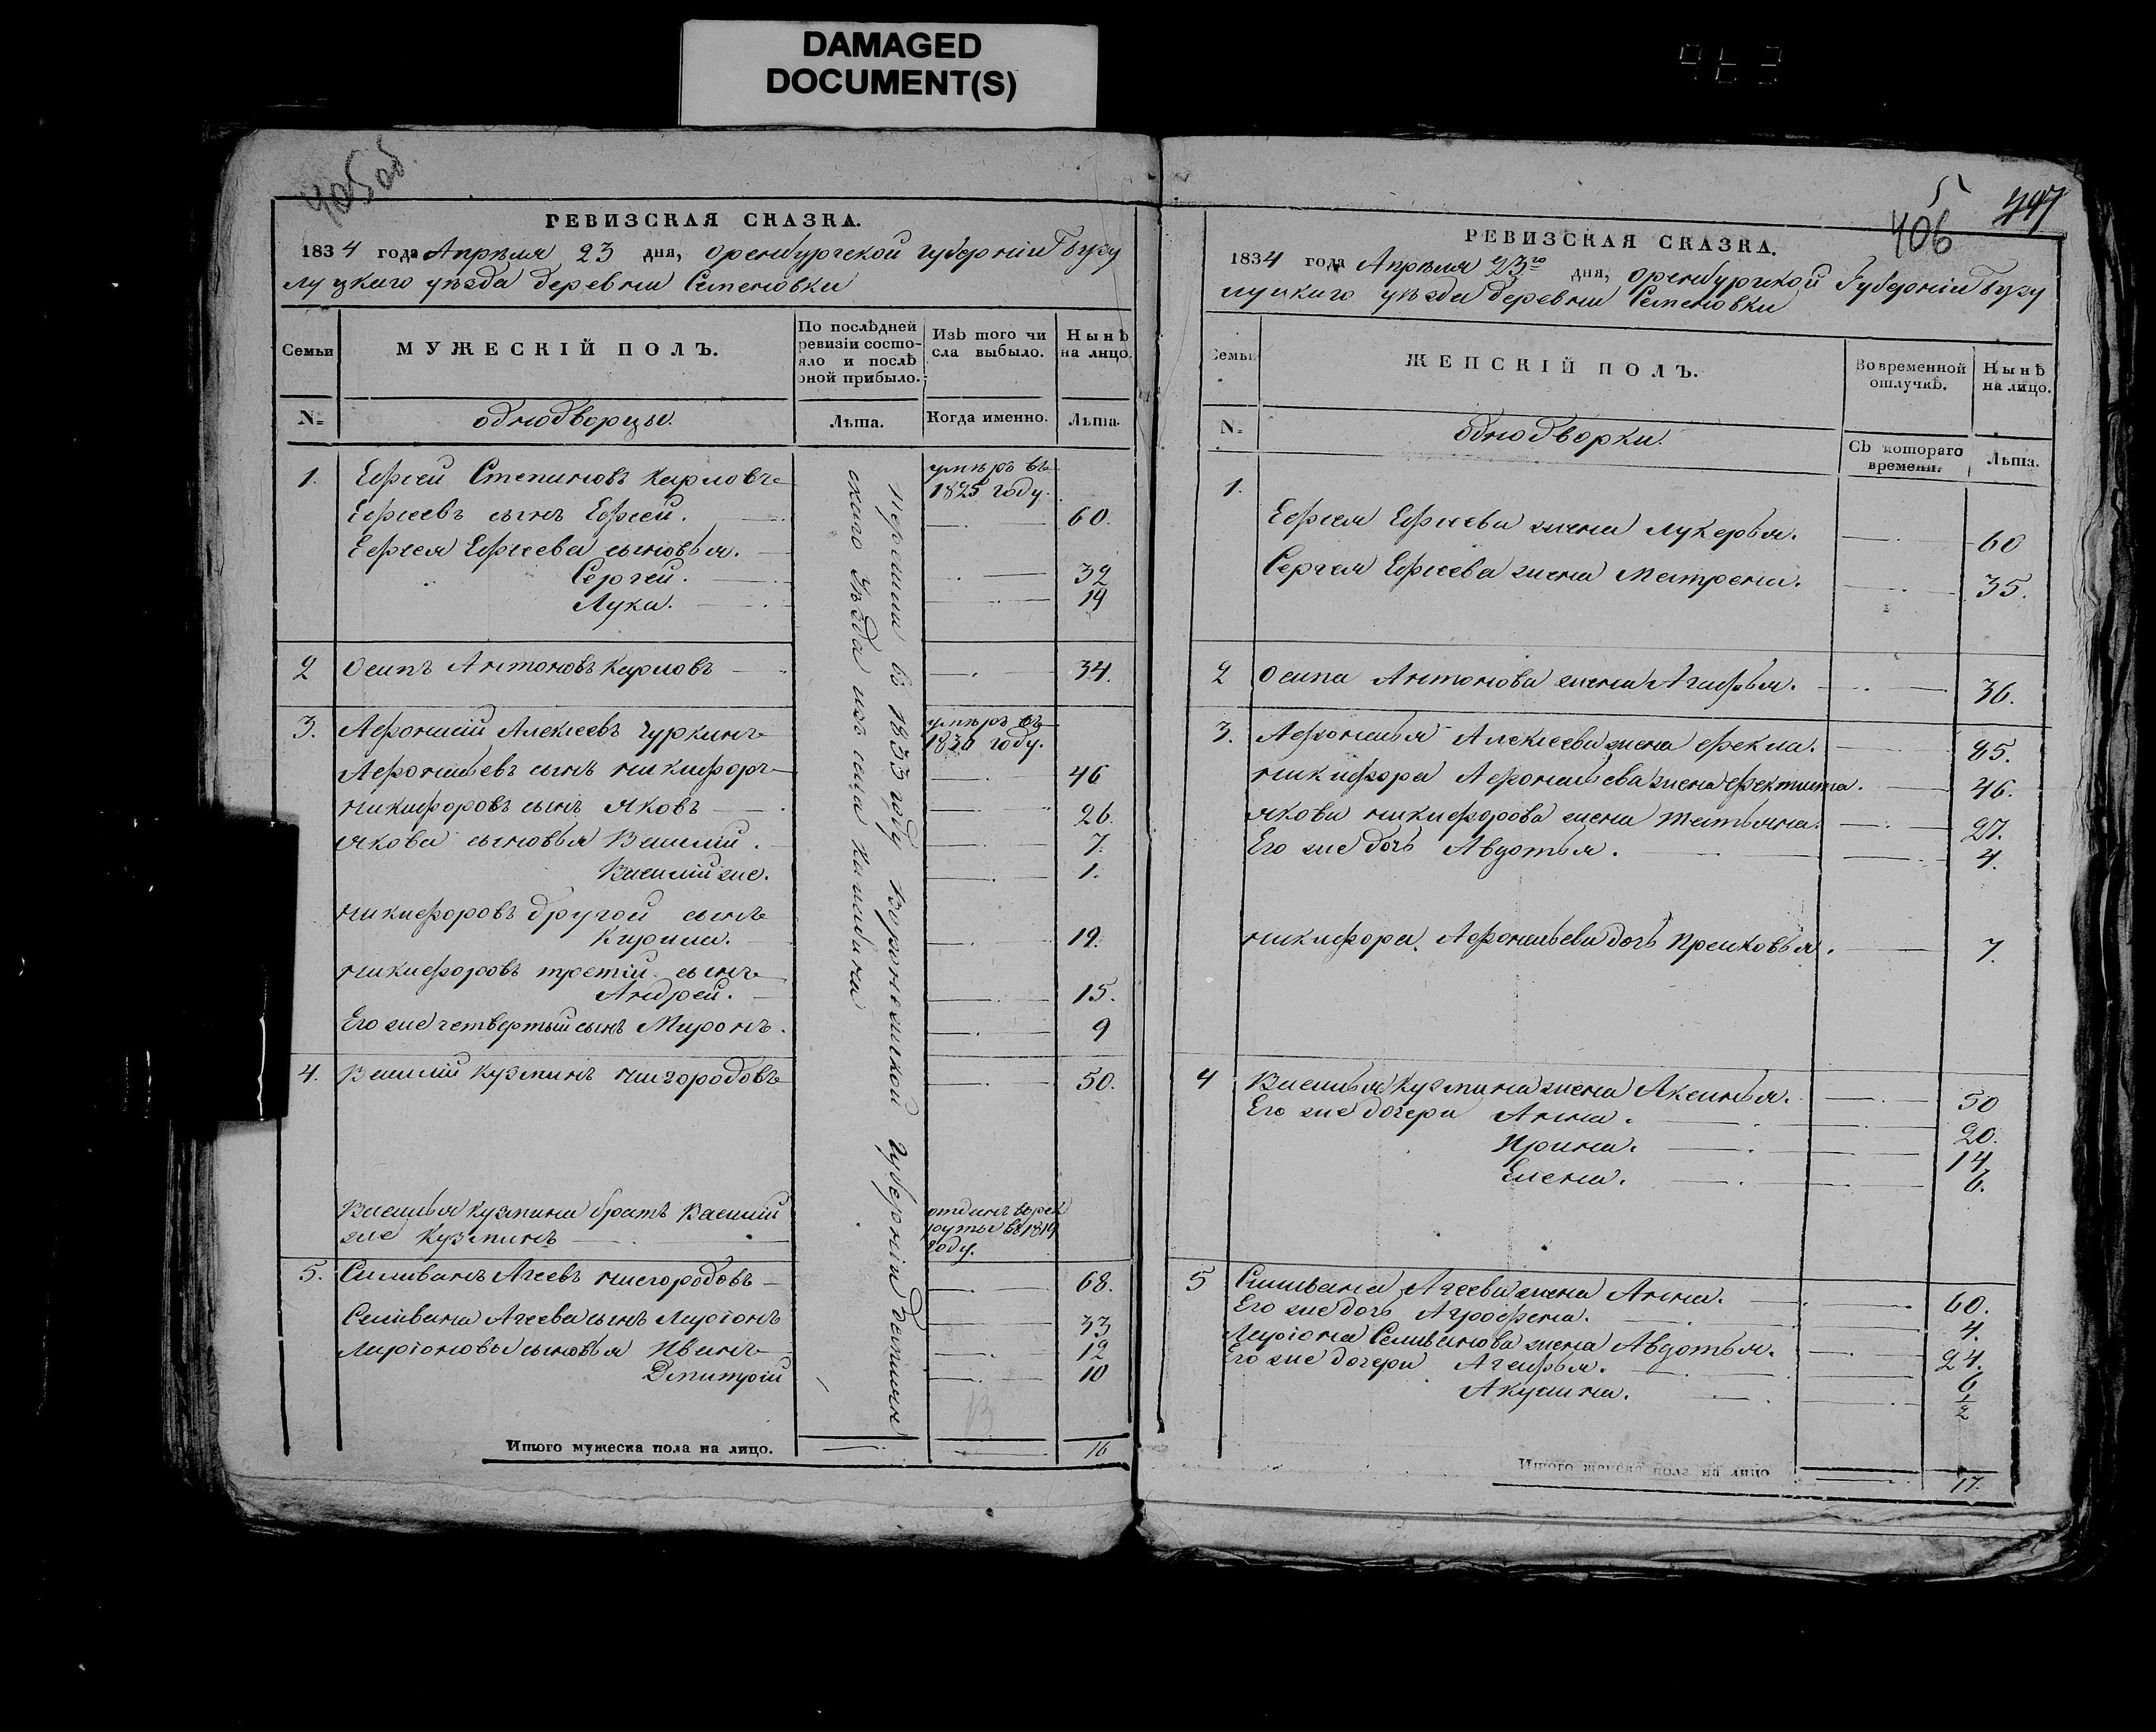 DAMAGED
DOCUMENT(S)
405об
РЕВИЗСКАЯ СКАЗКА.
1834 года Апрѣля 23 дня, Оренбургской губерніи Бузу
луцкаго уѣзда деревни Семеновки
Семьи
МУЖЕСКІЙ ПОЛЪ.
По послѣдней ревизіи состояло и послѣ оной прибыло.
Изъ того числа выбыло.
Нынѣ на лицо.
N=
однодворцы.
Лѣта.
Когда именно.
Лѣта.
1. Ефсей Степановъ Карловъ умѣръ въ 1825 году.
Ефсеевъ сынъ Ефсей. 60.
Ефсея Ефсеева сыновья.
Сергей. 32
Лука. 19
2 Осипъ Антоновъ Карловъ 34.
3. Афонасій Алексеевъ Чуркинъ умѣръ въ 1830 году.
Афонасьевъ сынъ Никифоръ 46
Никифоровъ сынъ Яковъ 26.
Якова сыновья Василий. 7.
Василий же. 1.
Никифоровъ другой сынъ
Кирила. 19.
Никифоровъ третій сынъ
Андрей. 15.
Его же четвертый сынъ Миронъ. 9
4. Василий Кузминъ Нигородовъ 50.
Василья Кузмина братъ Василий отданъ въ рек
же Кузминъ руты въ 1819
году.
5. Силиванъ Агеевъ Нигородовъ 68.
Селивана Агеева сынъ Ларіонъ 33
Ларіоновы сыновья Иванъ 12
Дмитрій 10
Перешли в 1833 году Воронежской губерніи
скаго уѣзда изъ села
Итого мужеска пола на лицо. 16
5
406
РЕВИЗСКАЯ СКАЗКА.
1834 года Апрѣля 23го дня, Оренбургской Губерніи Бузу
луцкаго уѣзда деревни Семеновки
Семьи
ЖЕНСКІЙ ПОЛЪ.
Во временной отлучкѣ.
Нынѣ на лицо.
N=
однодворки.
Съ котораго времени.
Лѣта.
1.
Ефсея Ефсеева жена Лукерья. 60
Сергея Ефсеева жена Матрена. 35.
2 Осипа Антонова жена Агафья. 36.
3. Афонасья Алексеева жена Фекла. 85.
Никифора Афонасьева жена Фектиста. 46.
Якова Никифорова жена Татьяна. 27.
Его же дочь Авдотья. 4.
Никифора Афонасьева дочь Прасковья. 7.
4 Василья Кузмина жена Аксинья. 50
Его же дочери Анна. 20.
Ирина. 14
Елена. 6.
5 Силивана Агеева жена Анна. 60.
Его же дочь Аграфена. 4.
Лариона Селиванова жена Авдотья. 24.
Его же дочери Агафья. 6
Акулина. 1/2
Итого женска пола на лицо 17.